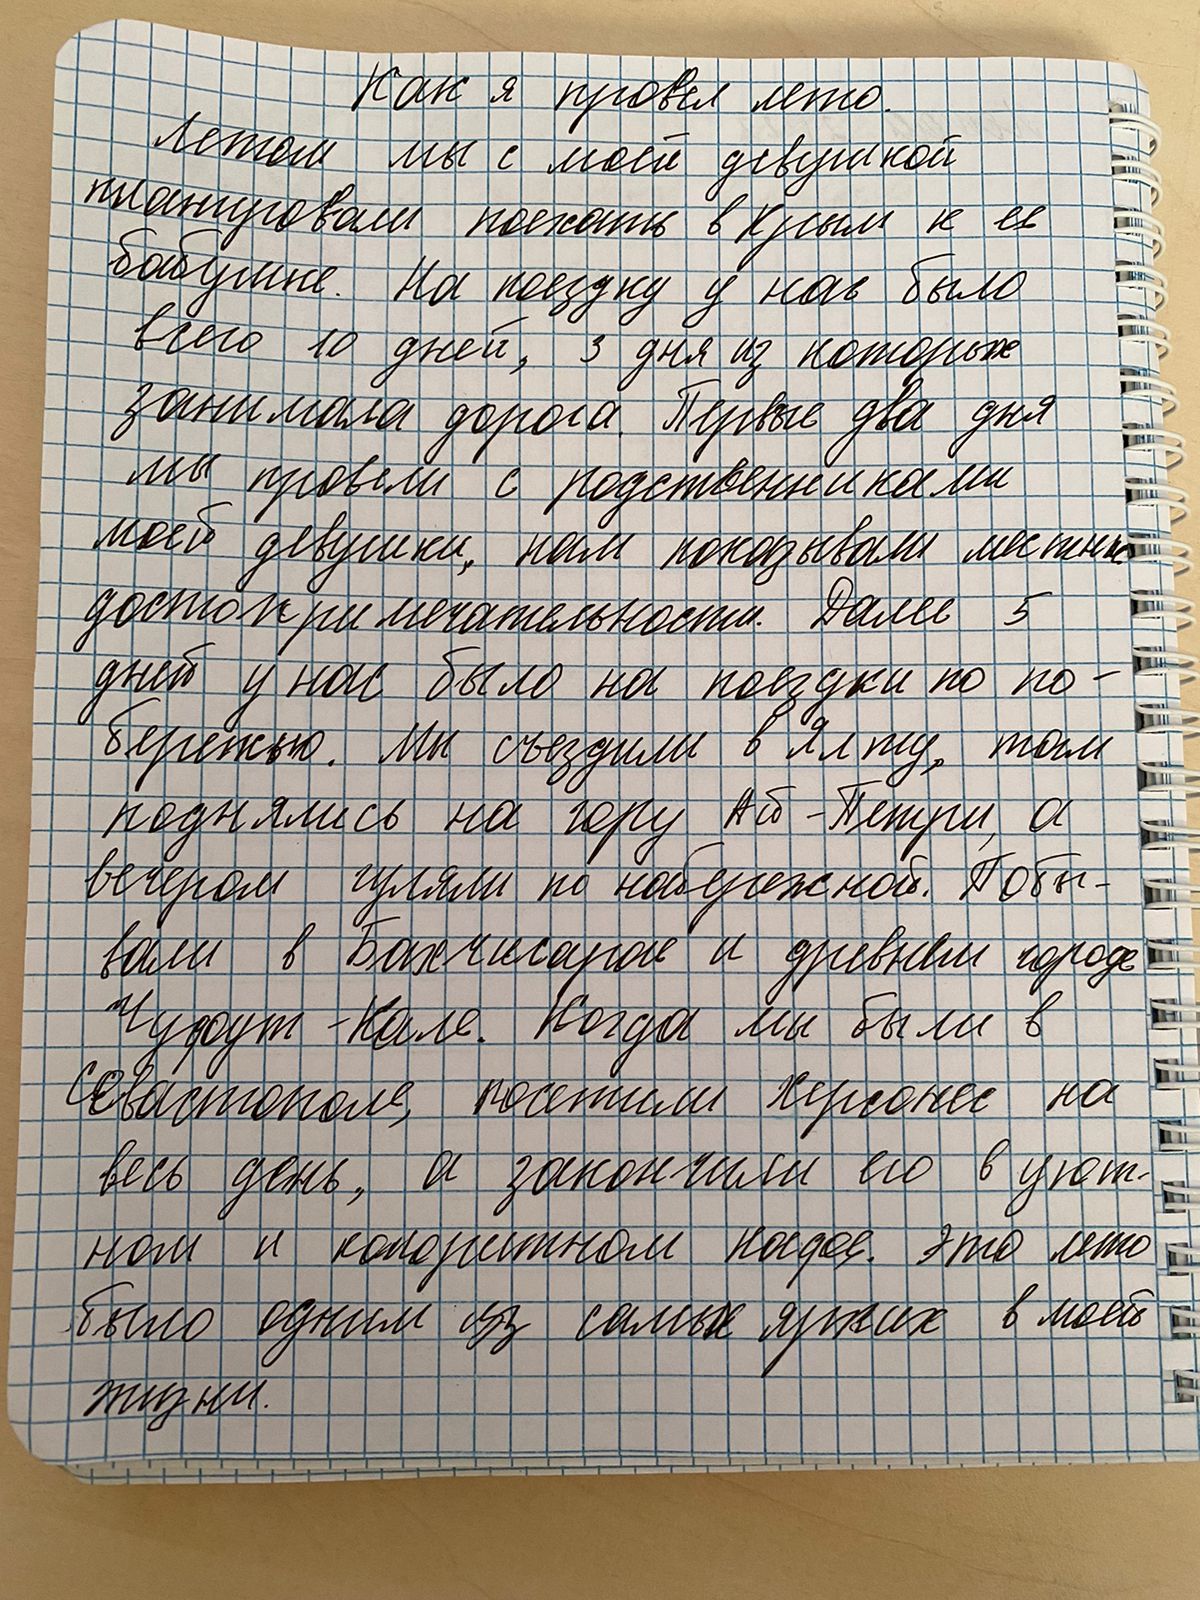 Как я провел лето.
Летом мы с моей девушкой
планировали поехать в Крым к ее
бабушке. На поездку у нас было
всего 10 дней, 3 дня из которых
занимала дорога. Первые два дня
мы провели с родственниками
моей девушки, нам показывали местные
достопримечательности. Далее 5
дней у нас было на поездки по по-
бережью. Мы съездили в Ялту, там
поднялись на гору Ай-Петри, а
вечером гуляли по набережной. Побы-
вали в Бахчисарае и древнем городе
Чуфут-Кале. Когда мы были в
Севастополе, посетили Херсонес на
весь день, а закончили его в уют-
ном и колоритном кафе. Это лето
было одним из самых ярких в моей
жизни.